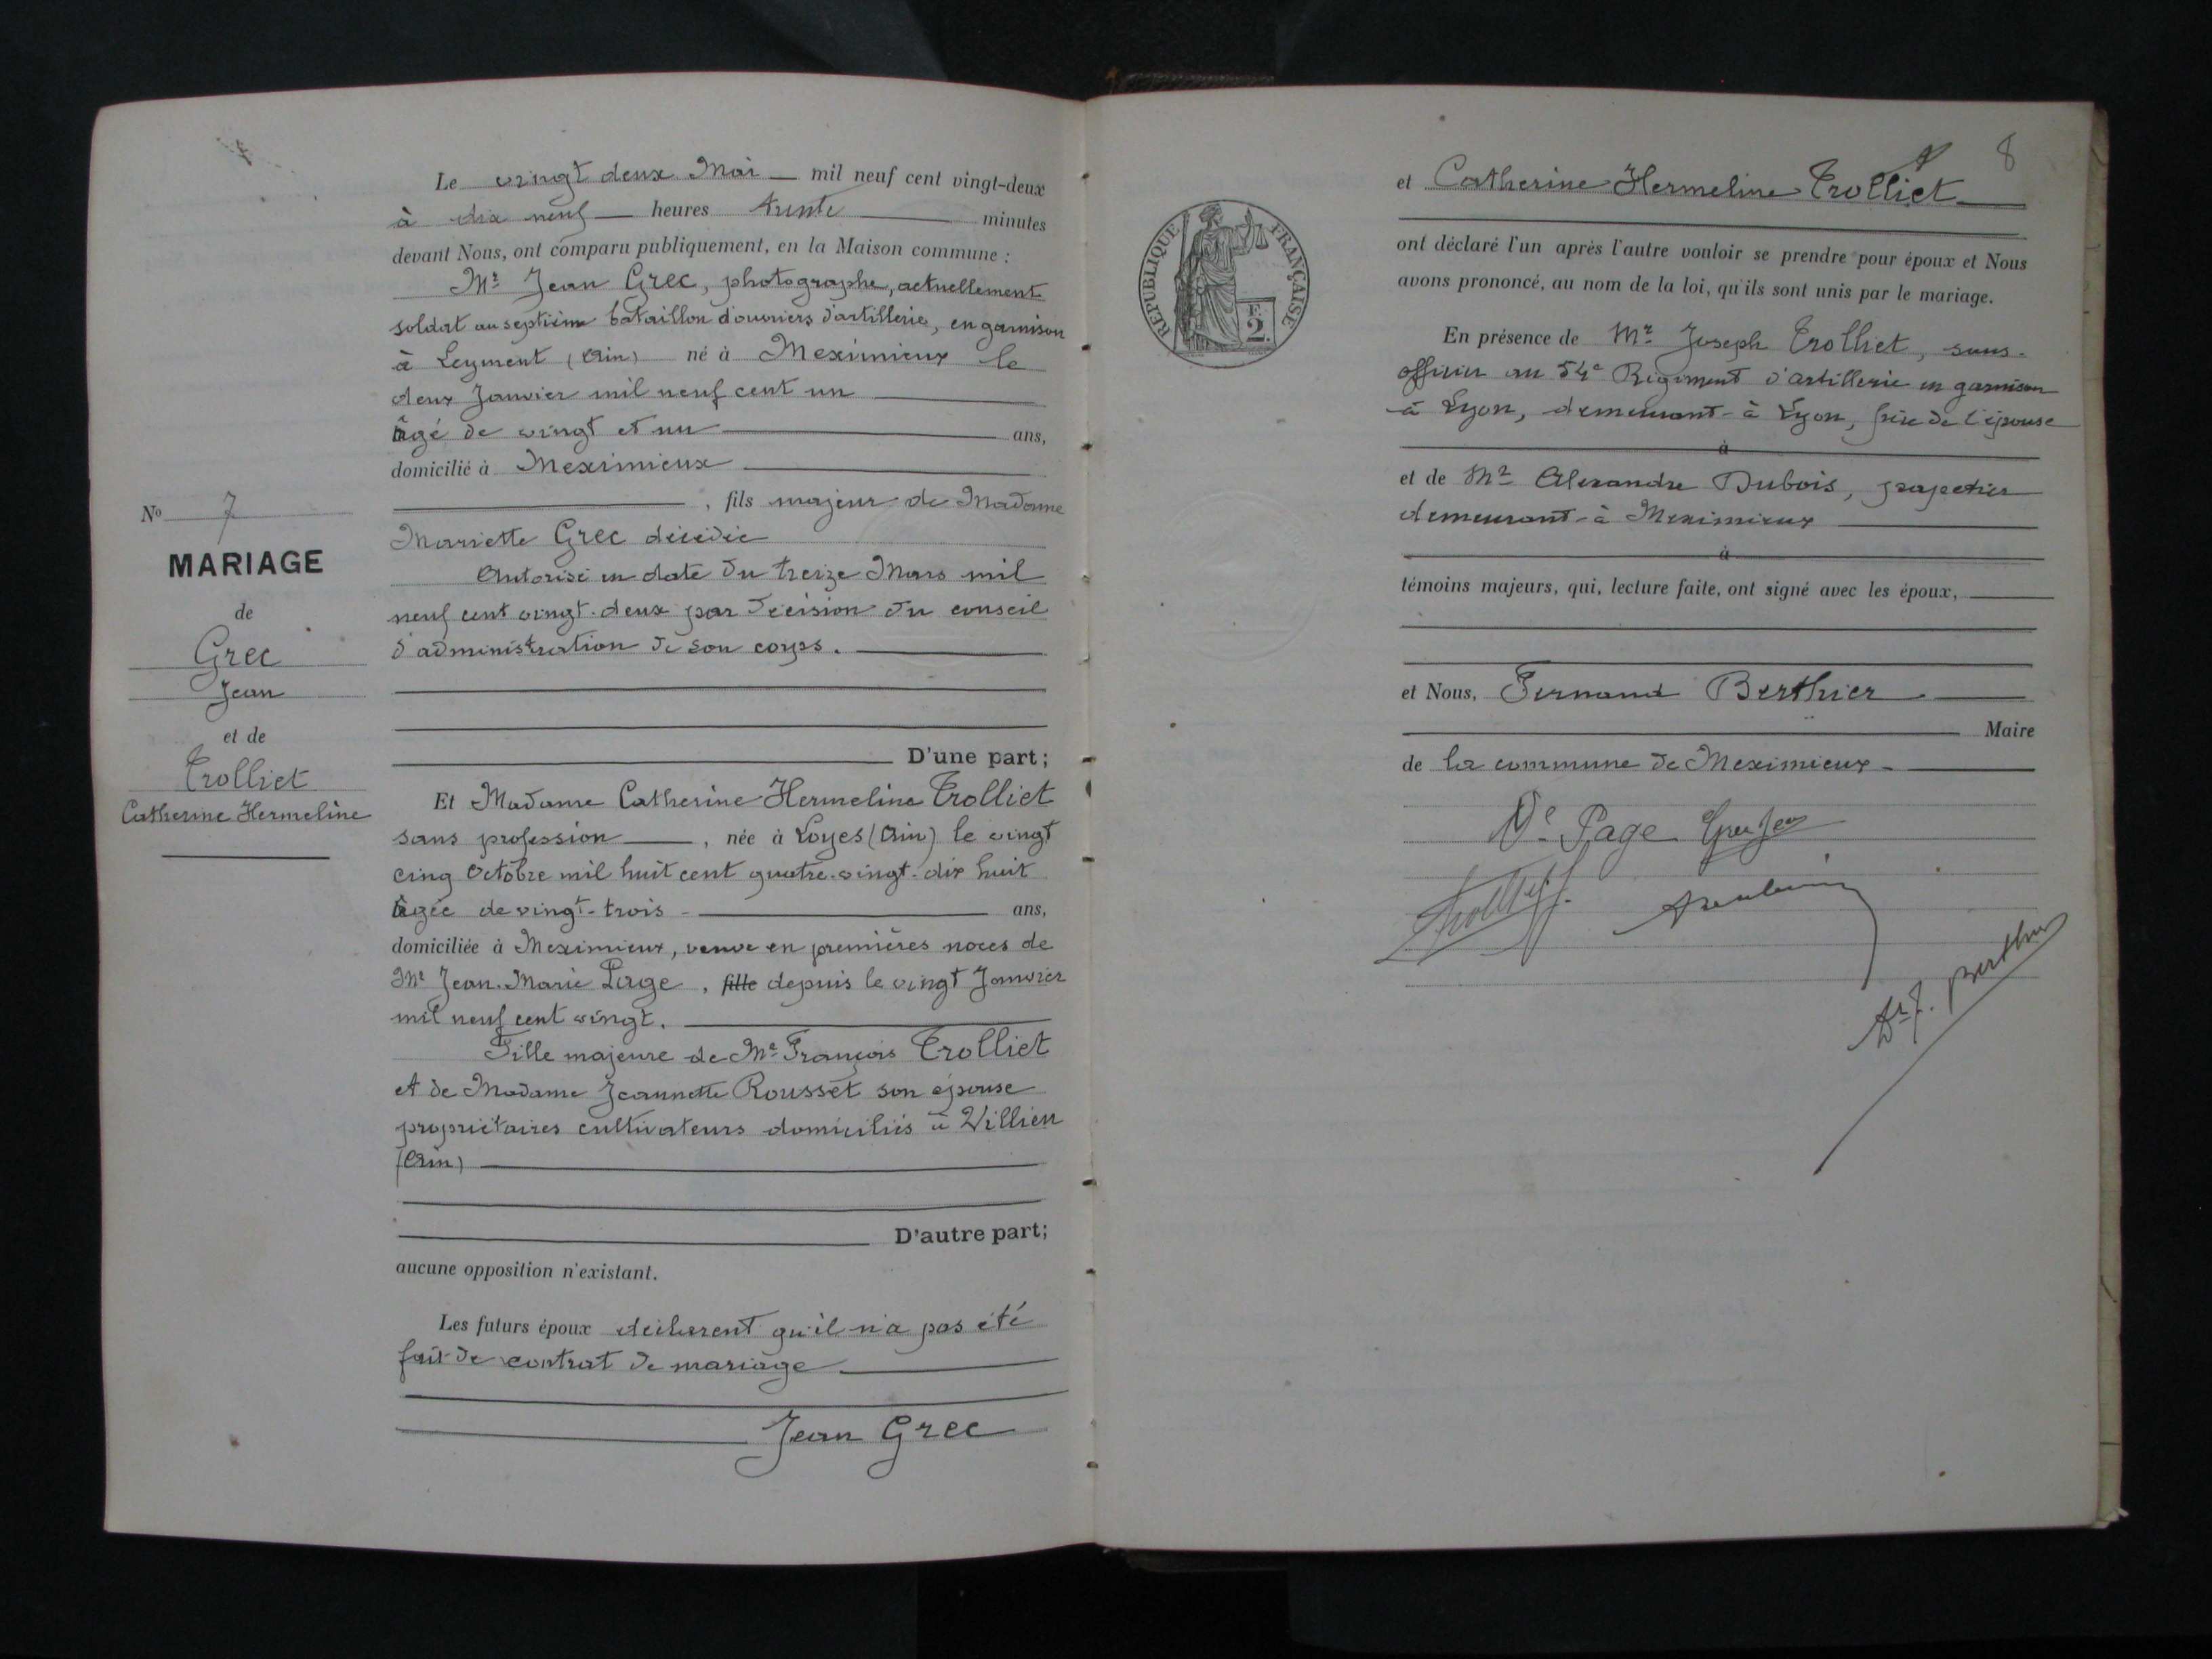 Le vingt deux Mai mil neuf cent vingt-deux
à dix neuf heures trente minutes
devant Nous, ont comparu publiquement, en la Maison commune :
Mr Jean Grec, photographe, actuellement
soldat au septième bataillon d'ouvriers d'artillerie, en garnison
à Leyment (Ain) né à Meximieux le
deux Janvier mil neuf cent un
âgé de vingt et un ans,
domicilié à Meximieux
, fils majeur de Madame
Mariette Grec décédée
Autorisé en date du treize Mars mil
neuf cent vingt-deux par décision du conseil
d'administration de son corps.
No 7
MARIAGE
de
Grec
Jean
et de
Trolliet
Catherine Hermeline
D'une part;
Et Madame Catherine Hermeline Trolliet
sans profession, née à Loyes (Ain) le vingt
cinq Octobre mil huit cent quatre-vingt-dix huit
âgée de vingt-trois ans,
domiciliée à Meximieux, veuve en premières noces de
Mr Jean-Marie Page, fille depuis le vingt Janvier
mil neuf cent vingt.
Fille majeure de Mr François Trolliet
et de Madame Jeannette Rousset son épouse
propriétaires cultivateurs domiciliés à Villieu
(Ain)
D'autre part;
aucune opposition n'existant.
Les futurs époux déclarent qu'il n'a pas été
fait de contrat de mariage
Jean Grec
8
RÉPUBLIQUE FRANÇAISE
2
et Catherine Hermeline Trolliet
ont déclaré l'un après l'autre vouloir se prendre pour époux et Nous
avons prononcé, au nom de la loi, qu'ils sont unis par le mariage.
En présence de Mr Joseph Trolliet, sous-
officier au 54e Régiment d'artillerie en garnison
à Lyon, demeurant à Lyon, frère de l'épouse
à
et de Mr Alexandre Dubois, papetier
demeurant à Meximieux
à
témoins majeurs, qui, lecture faite, ont signé avec les époux,
et Nous, Fernand Berthier
Maire
de la commune de Meximieux
Ve Page Grec Jean
Dr F. Berthier